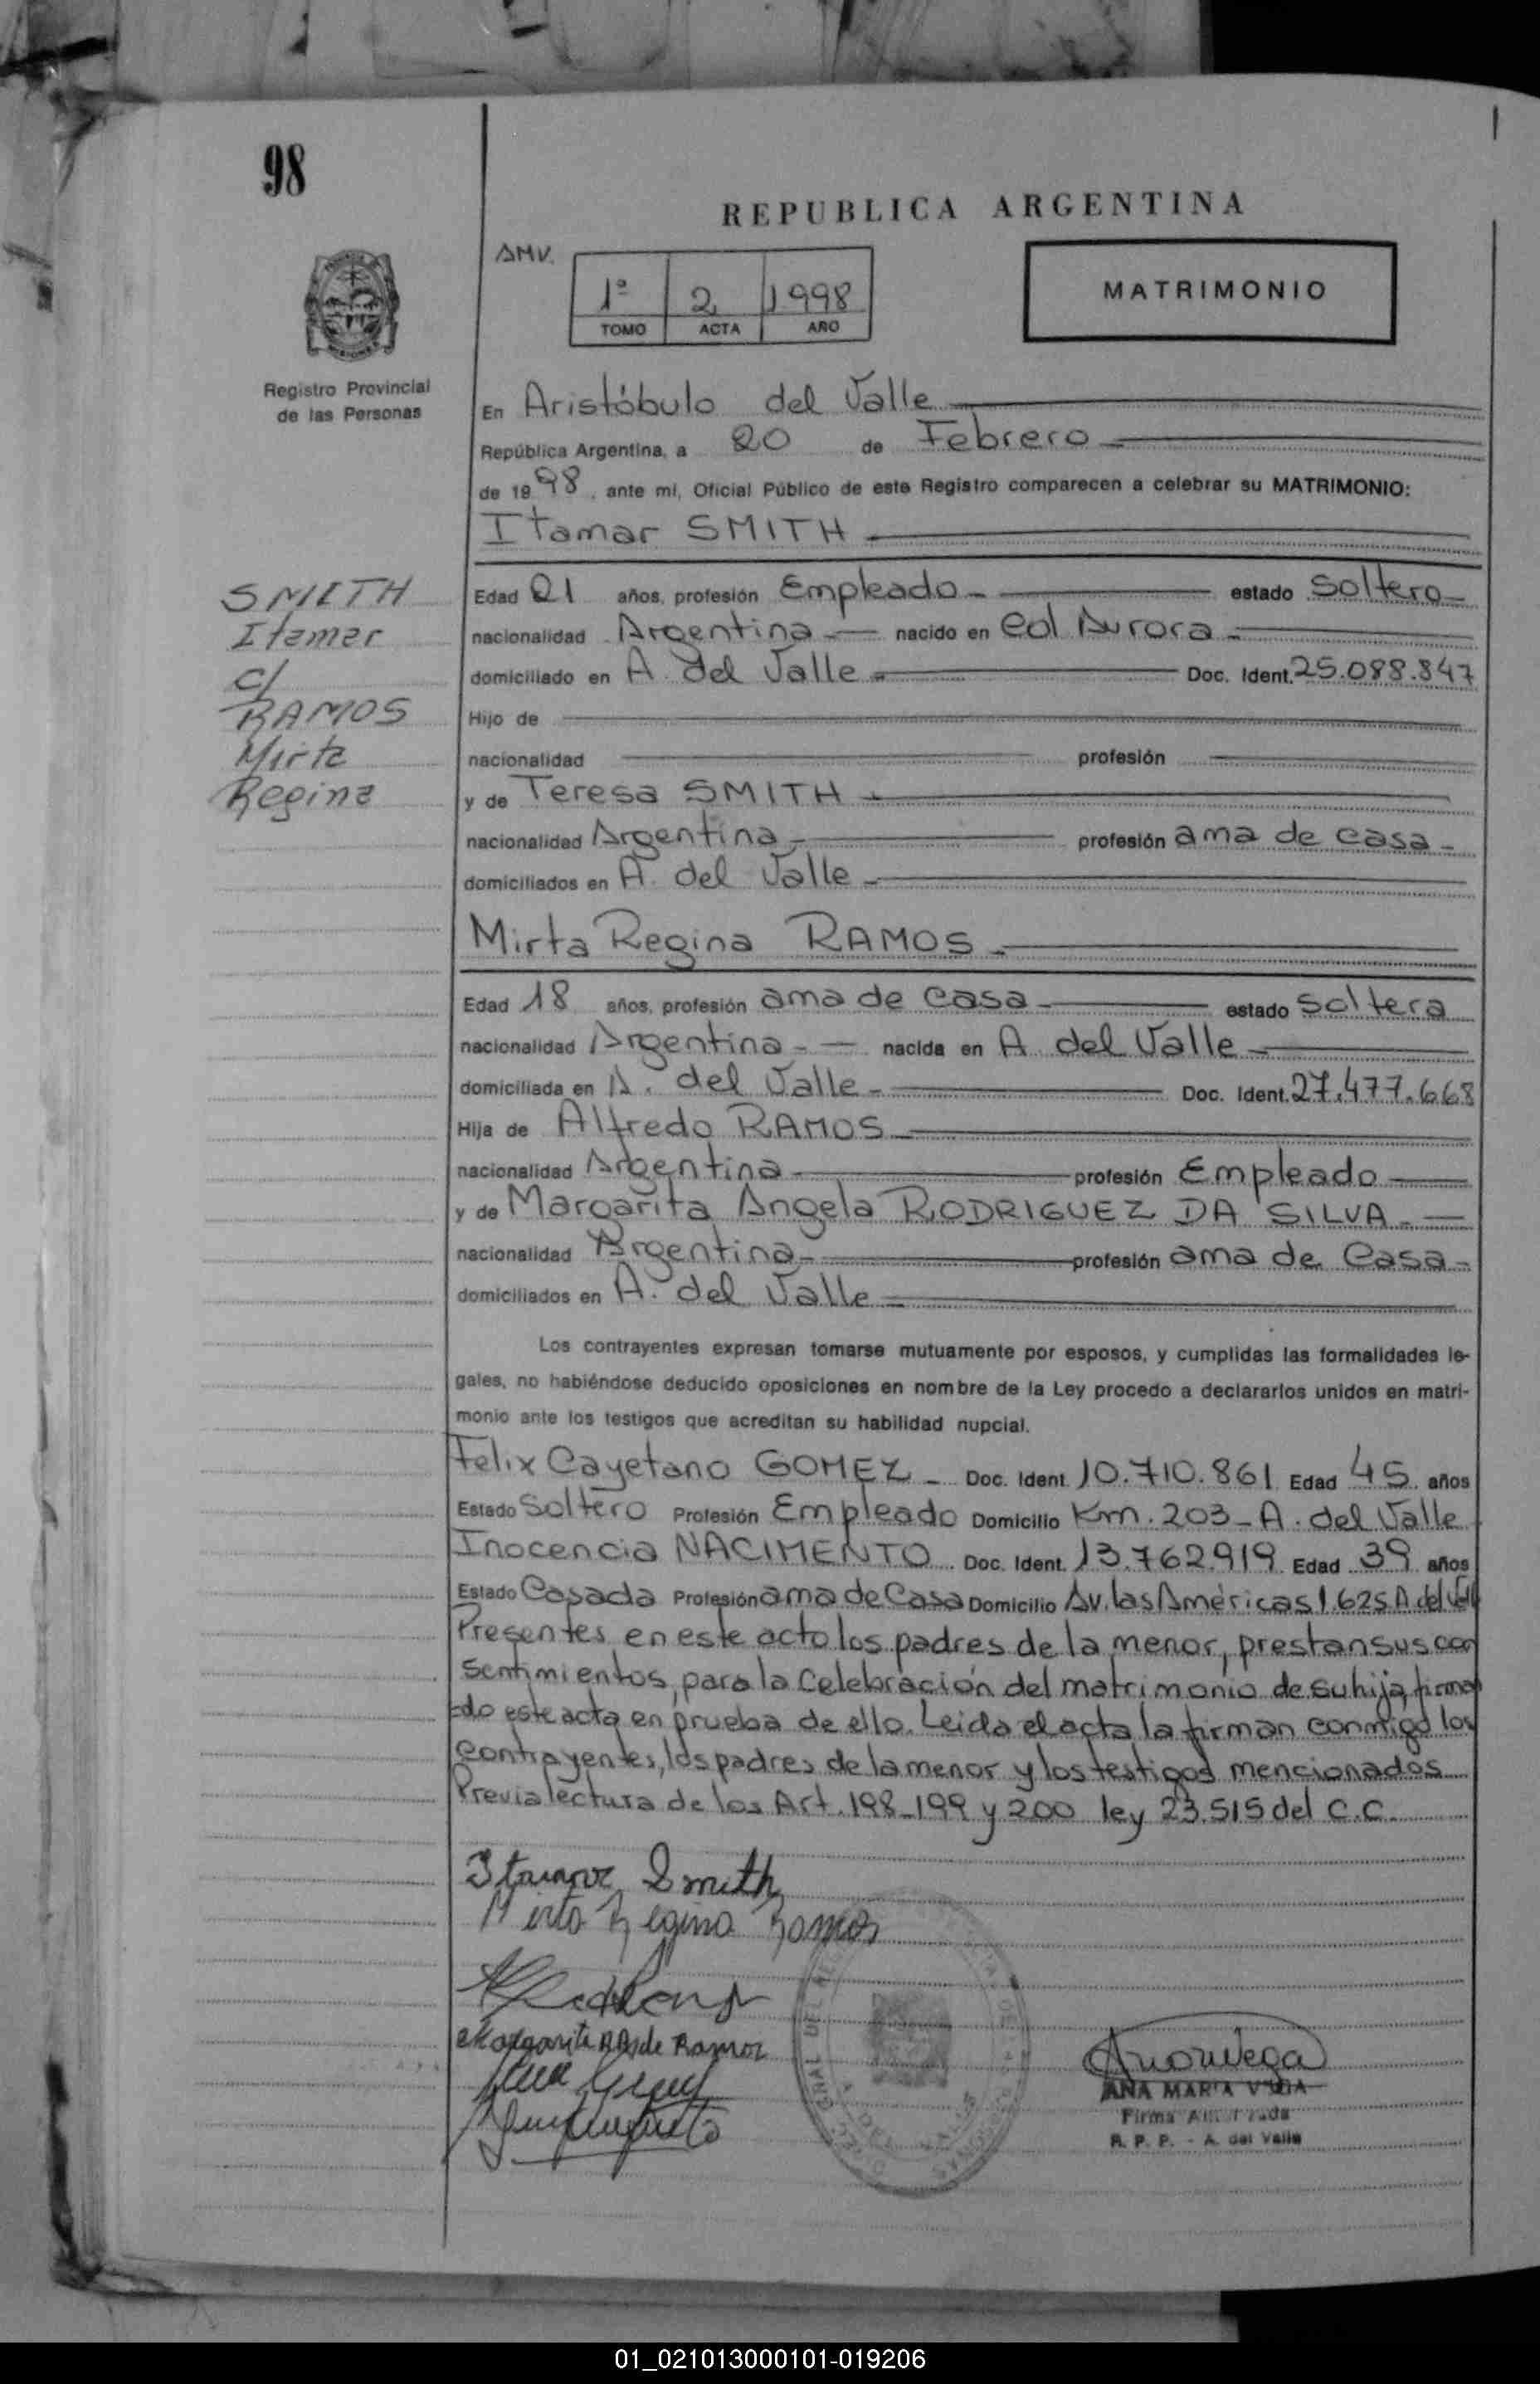 98
REPUBLICA ARGENTINA
AMV.
1º 2 1.998
TOMO ACTA AÑO
MATRIMONIO
Registro Provincial
de las Personas
En Aristóbulo del Valle
República Argentina, a 20 de Febrero
de 1998, ante mi, Oficial Público de este Registro comparecen a celebrar su MATRIMONIO:
Itamar SMITH
SMITH
Itamar
c/
RAMOS
Mirta
Regina
Edad 21 años, profesión Empleado estado Soltero
nacionalidad Argentina nacido en Col Aurora
domiciliado en A. del Valle Doc. Ident. 25.088.847
Hijo de
nacionalidad profesión
y de Teresa SMITH
nacionalidad Argentina profesión ama de casa
domiciliados en A. del Valle
Mirta Regina RAMOS
Edad 18 años, profesión ama de casa estado soltera
nacionalidad Argentina nacida en A. del Valle
domiciliada en A. del Valle Doc. Ident. 27.477.668
Hija de Alfredo RAMOS
nacionalidad Argentina profesión Empleado
y de Margarita Angela RODRIGUEZ DA SILVA
nacionalidad Argentina profesión ama de Casa
domiciliados en A. del Valle
Los contrayentes expresan tomarse mutuamente por esposos, y cumplidas las formalidades le-
gales, no habiéndose deducido oposiciones en nombre de la Ley procedo a declararlos unidos en matri-
monio ante los testigos que acreditan su habilidad nupcial.
Felix Cayetano GOMEZ Doc. Ident. 10.710.861 Edad 45 años
Estado Soltero Profesión Empleado Domicilio Km. 203 - A. del Valle
Inocencia NACIMENTO Doc. Ident. 13.762.919 Edad 39 años
Estado Casada Profesión ama de Casa Domicilio Av. las Américas 1.625 A. del Valle
Presentes en este acto los padres de la menor, prestan sus con
sentimientos, para la Celebración del matrimonio de su hija, firman
=do este acta en prueba de ello. Leida el acta la firman conmigo los
contrayentes, los padres de la menor y los testigos mencionados
Previa lectura de los Art. 198-199 y 200 ley 23.515 del C.C.
Itamar Smith
Mirta Regina Ramos
Margarita de Ramos
ANA MARIA VEGA
Firma Autorizada
R. P. P. - A. del Valle
01_021013000101-019206